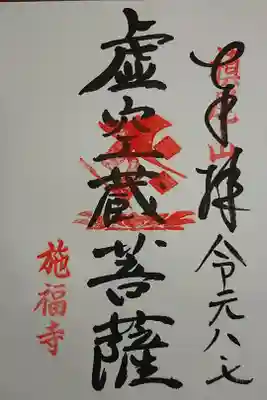 奉拝
槙尾山
令元八七
虚空蔵菩薩
施福寺